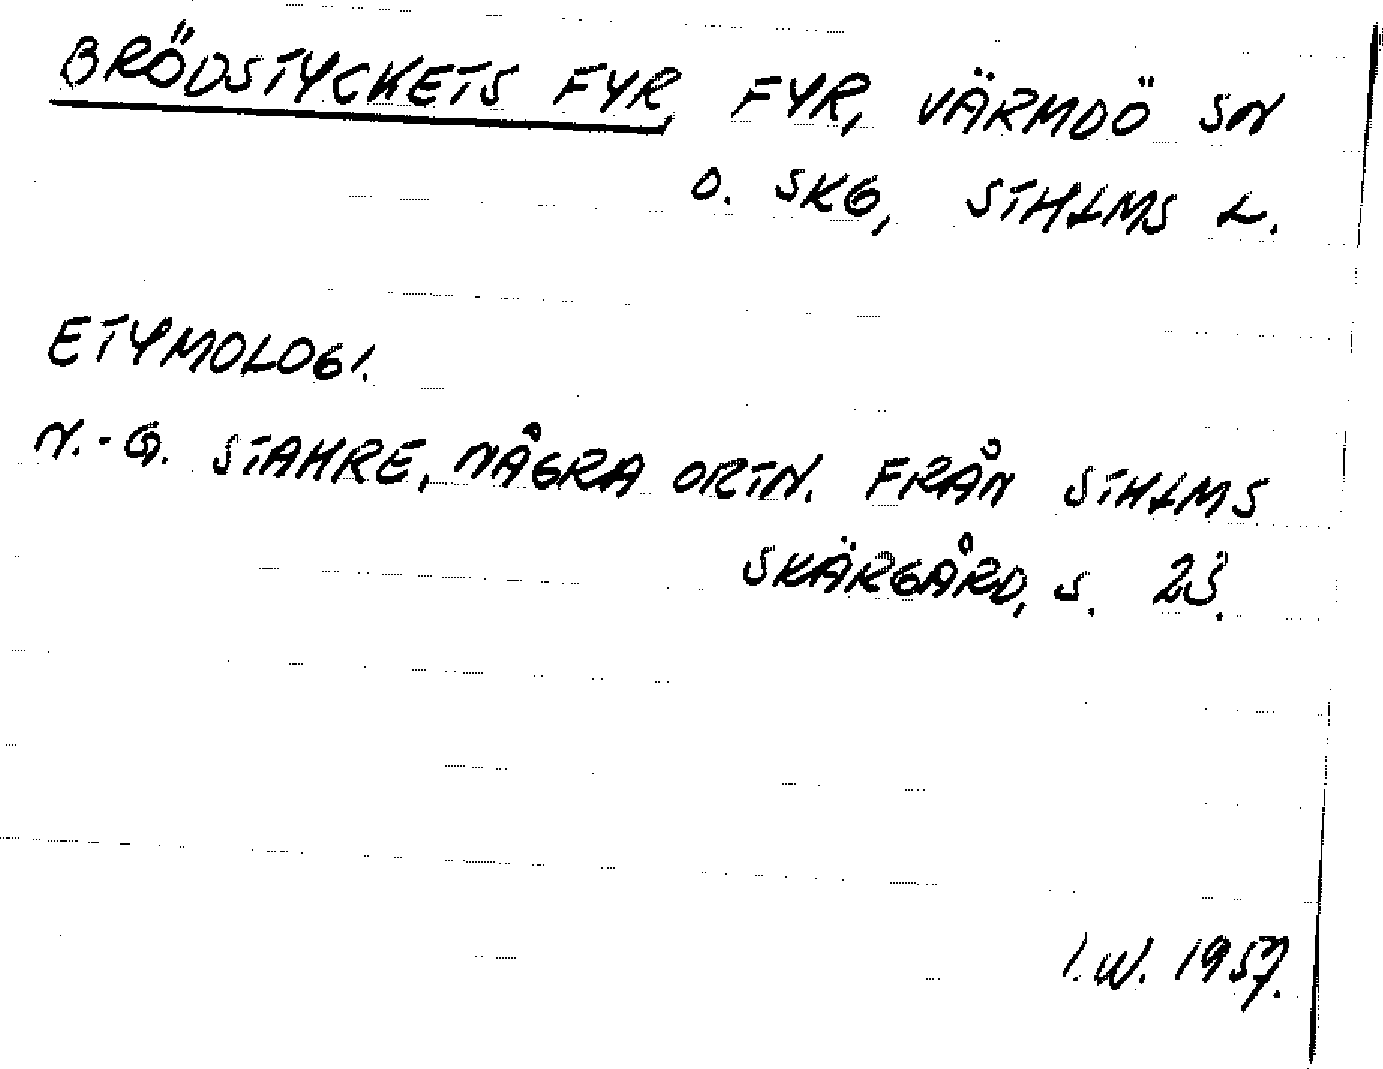 BRÖDSTYCKETS FYR, FYR, VÄRMDÖ SN
O. SKG, STHLMS L.
ETYMOLOGI.
N.-G. STAHRE, NÅGRA ORTN. FRÅN STHLMS
SKÄRGÅRD, S. 23.
I.W. 1957.